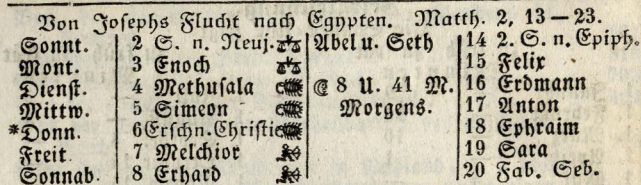 Von Josephs Flucht nach Egypten. Matth. 2, 13—23.
Sonnt. 2 S. n. Neuj. Abel u. Seth 14 2. S. n. Epiph.
Mont. 3 Enoch 15 Felix
Dienst. 4 Methusala 8 U. 41 M. 16 Erdmann
Mittw. 5 Simeon Morgens. 17 Anton
*Donn. 6 Erschn. Christi 18 Ephraim
Freit 7 Melchior 19 Sara
Sonnab. 8 Erhard 20 Fab. Seb.